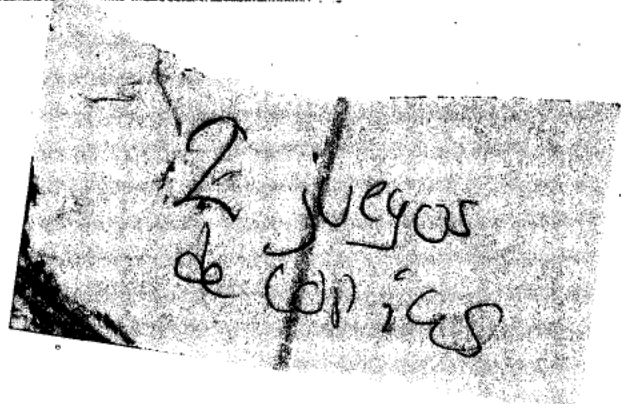 2 juegos
de copias